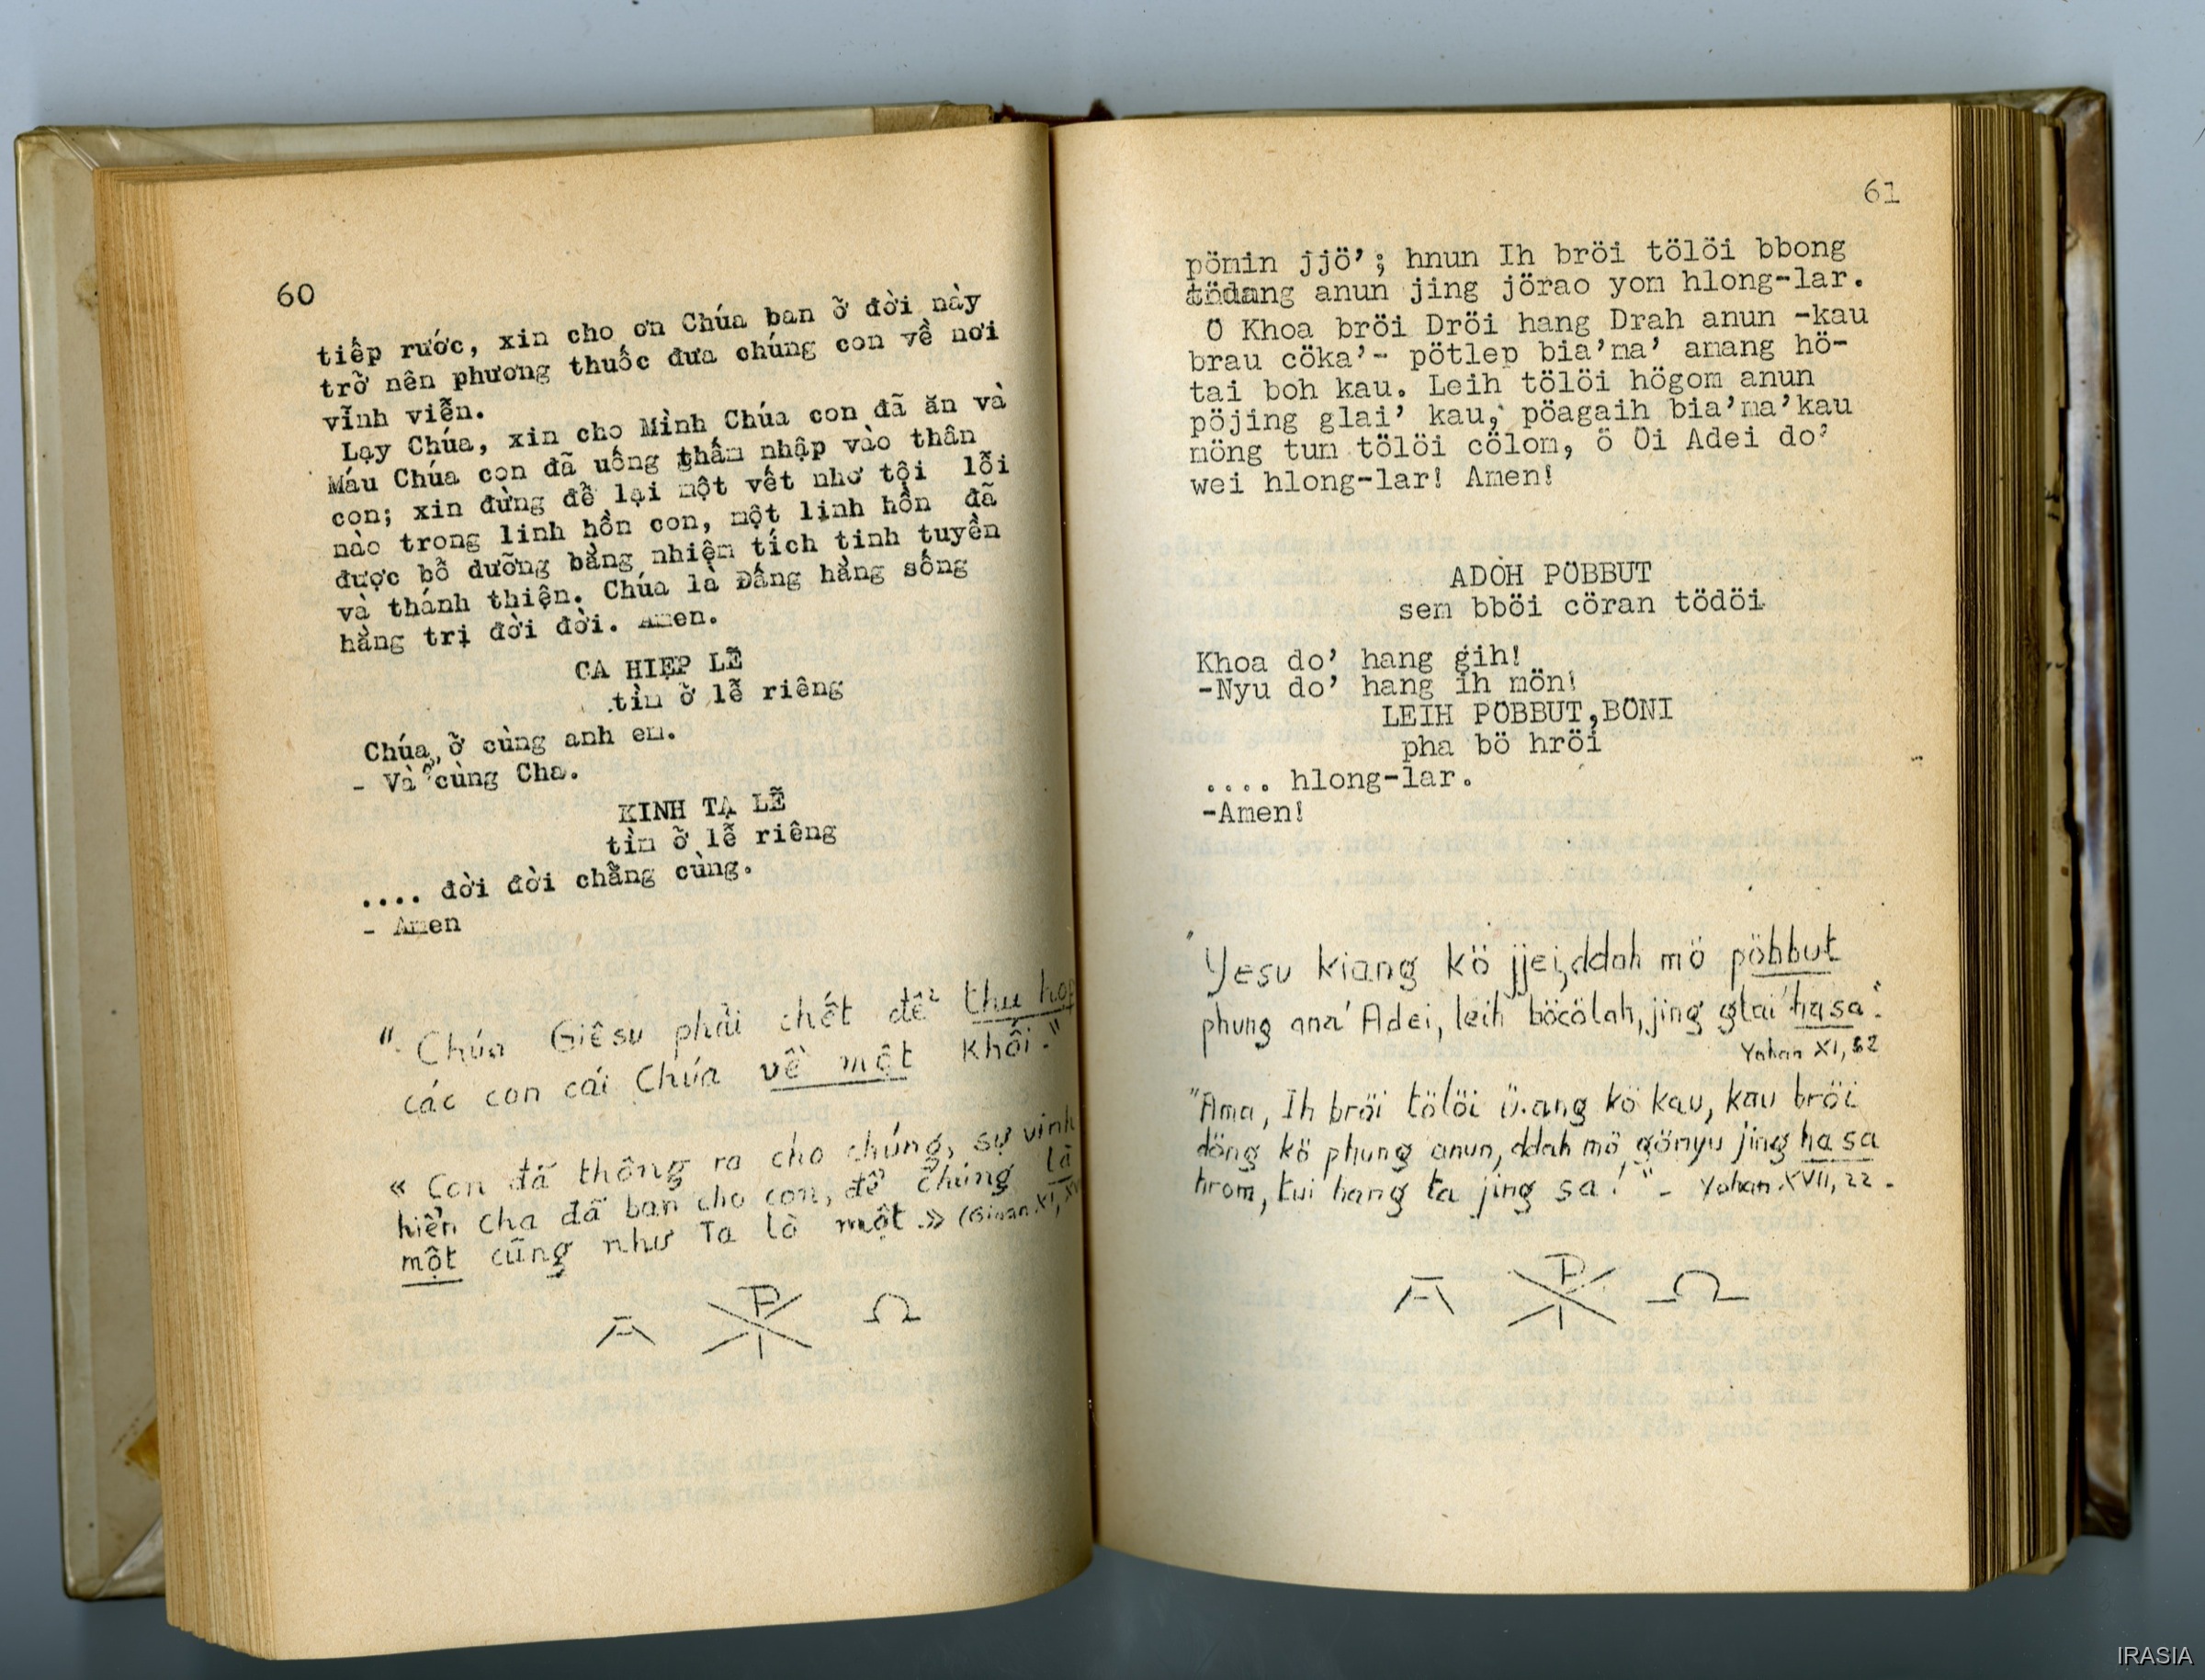 60
tiếp rước, xin cho ơn Chúa ban ở đời này
trở nên phương thuốc đưa chúng con về nơi
vĩnh viễn.
Lạy Chúa, xin cho Mình Chúa con đã ăn và
Máu Chúa con đã uống thấm nhập vào thân
con; xin đừng để lại một vết nhơ tội lỗi
nào trong linh hồn con, một linh hồn đã
được bồ dưỡng bằng nhiệm tích tinh tuyền
và thánh thiện. Chúa là Đấng hằng sống
hằng trị đời đời. Amen.
CA HIỆP LỄ
tìm ở lễ riêng
Chúa ở cùng anh em.
- Và ở cùng Cha.
KINH TẠ LỄ
tìm ở lễ riêng
.... đời đời chẳng cùng.
- Amen
" Chúa Giêsu phải chết để thu họp
các con cái Chúa về một khối."
« Con đã thông ra cho chúng, sự vinh
hiển cha đã ban cho con, để chúng là
một cũng như Ta là một.» (Gioan XI,
A ☧ Ω
61
pömin jjö’; hnun Ih bröi tölöi bbong
anun jing jörao yom hlong-lar.
Ö Khoa bröi Dröi hang Drah anun -kau
brau cöka’- pötlep bia’ma’ amang hö-
tai boh kau. Leih tölöi högom anun
pöjing glai’ kau, pöagaih bia’ma’kau
möng tum tölöi cölom, ö Öi Adei do’
wei hlong-lar! Amen!
ADOH PÖBBUT
sem bböi cöran tödöi
Khoa do’ hang gih!
-Nyu do’ hang ih mön!
LEIH PÖBBUT,BÖNI
pha bö hröi
.... hlong-lar.
-Amen!
" Yesu kiang kö jjei, ddah mö pöbbut
phung ana' Adei, leih böcölah, jing glai' hasa".
Yohan XI, 52
"Ama, Ih bröi tölöi ü.ang kö kau, kau bröi
döng kö phung anun, ddah mö gönyu jing ha sa
hrom, tui hang ta jing sa!" - Yohan XVII, 22 -
A ☧ Ω
IRASIA